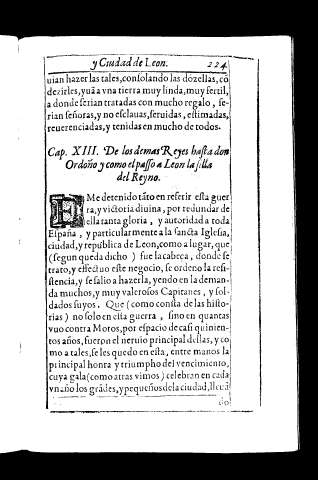 y Ciudad de Leon. 224
uian hazer las tales, consolando las dõzellas, cõ
dezirles, yuã a vna tierra muy linda, muy fertil,
a donde serian tratadas con mucho regalo, se-
rian señoras, y no esclauas, seruidas, estimadas,
reuerenciadas, y tenidas en mucho de todos.
Cap. XIII. De los demas Reyes hasta don
Ordoño y como el passo a Leon la silla
del Reyno.
ME detenido tãto en referir esta guer
ra, y victoria diuina, por redundar de
ella tanta gloria, y autoridad a toda
España, y particularmente a la sancta Iglesia,
ciudad, y republica de Leon, como a lugar, que
(segun queda dicho) fue la cabeça, donde se
trato, y effectuo este negocio, se ordeno la resi-
stencia, y se salio a hazerla, yendo en la deman-
da muchos, y muy valerosos Capitanes, y sol-
dados suyos. Que (como consta de las histo-
rias) no solo en esta guerra, sino en quantas
vuo contra Moros, por espacio de casi quinien-
tos años, fueron el neruio principal dellas, y co
mo a tales, se les quedo en esta, entre manos la
principal honra y triumpho del vencimiento,
cuya gala (como atras vimos) celebran en cada
vn año los grãdes, y pequeños de la ciudad, lleuã
do